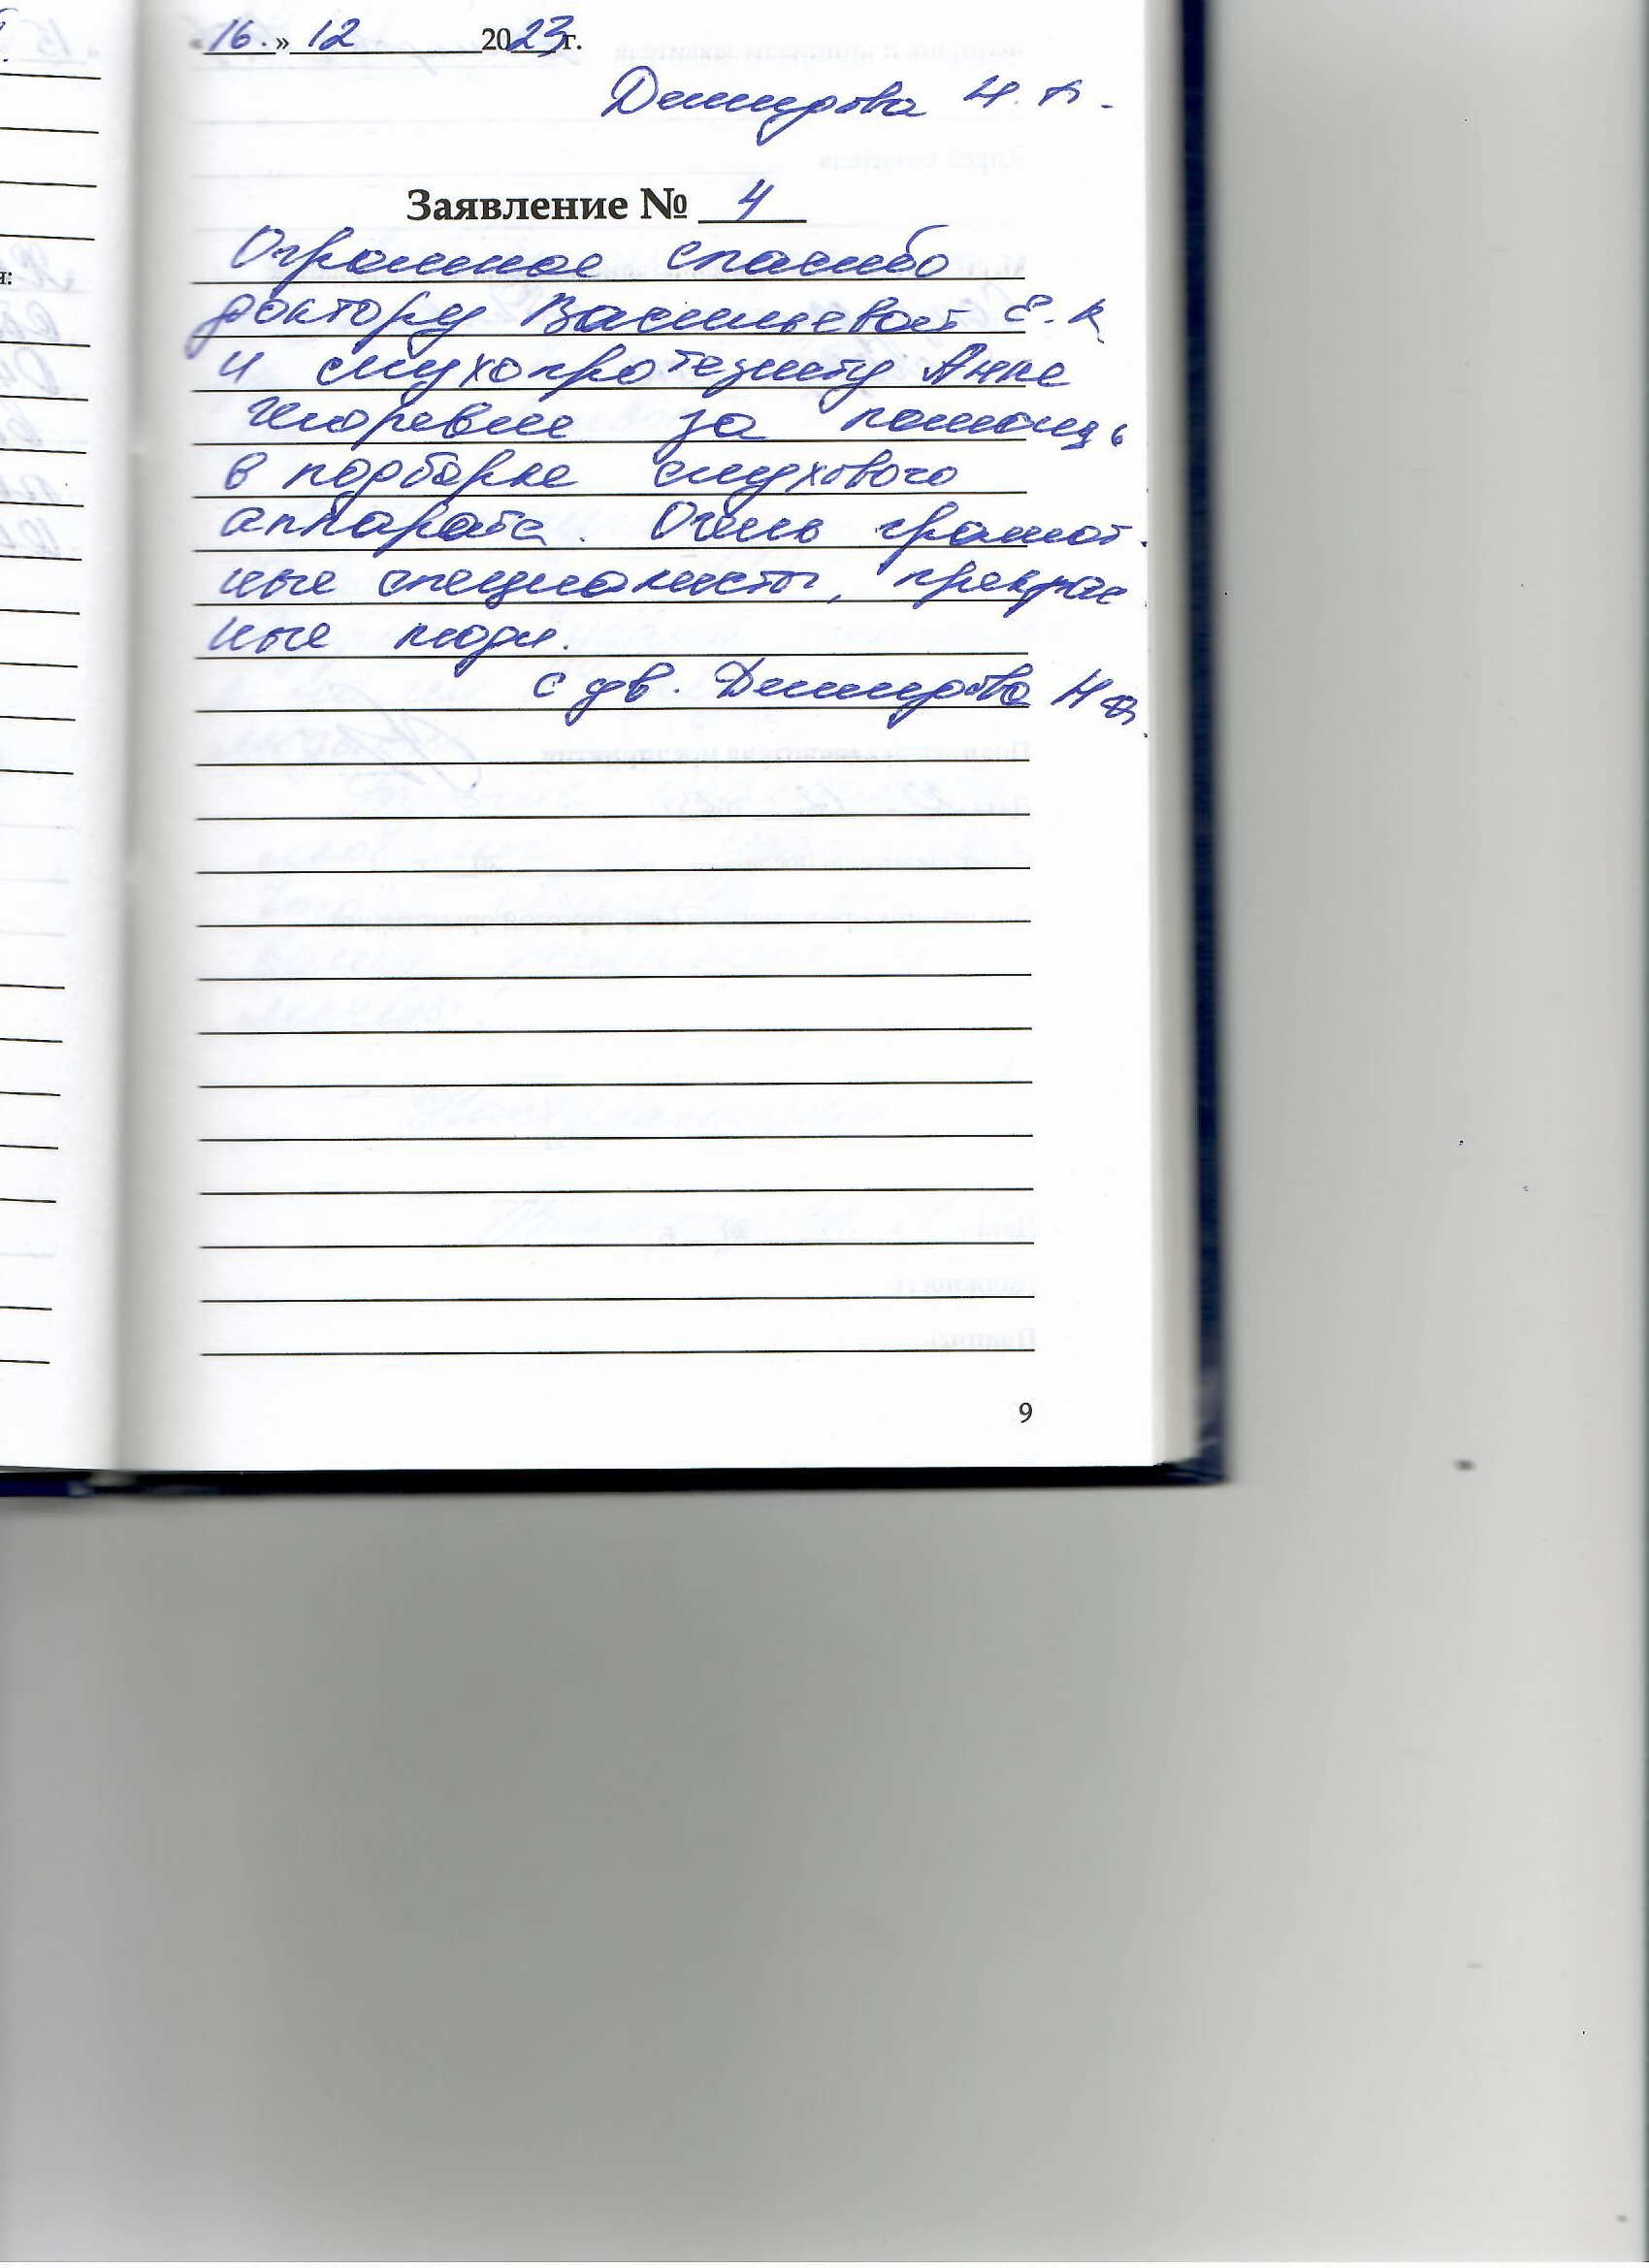 «16.» 12 2023 г.
Демидова Н. А.
Заявление № 4
Огромное спасибо
доктору Васильевой Е. К
и слухопротезисту Анне
Игоревне за помощь
в подборке слухового
аппарата. Очень грамот-
ные специалисты, прекрас
ные люди.
с ув. Н
9